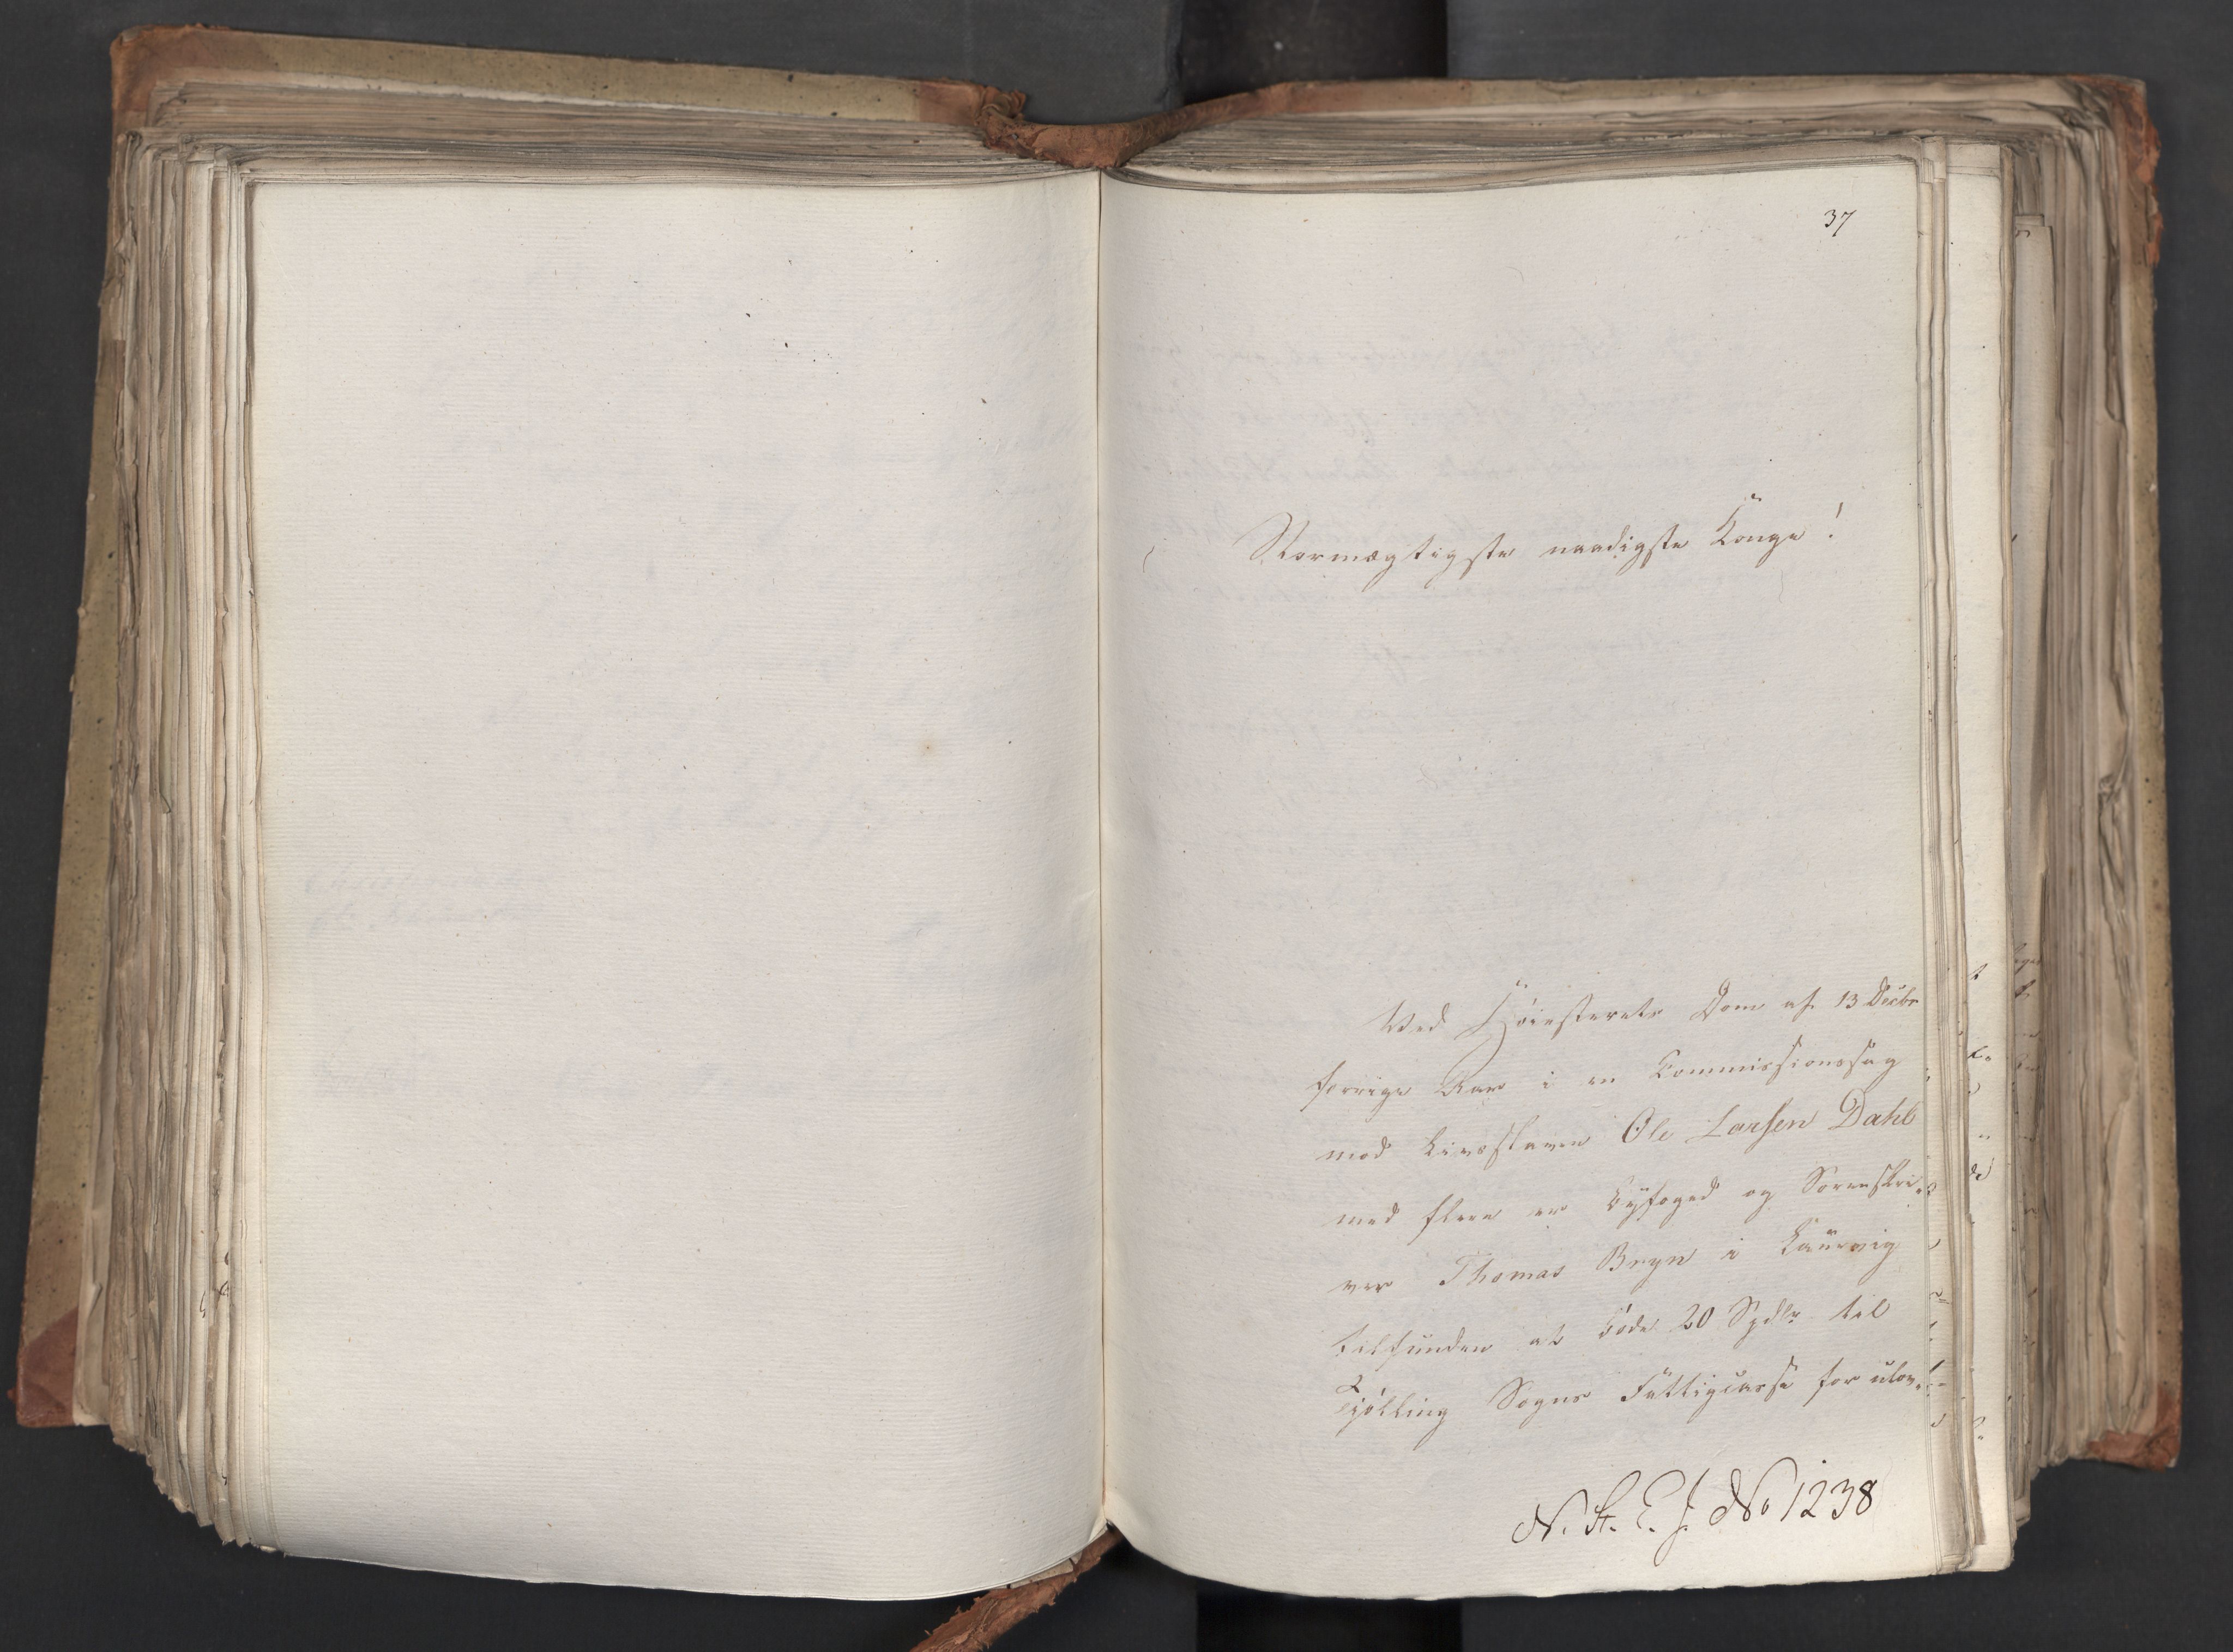 37
Stormægtigste naadigste Konge!
Ved Høiesterets Dom af 13 Decbr
forrige Aar i en Commissionssag
mod Livsslaven Ole Larsen Dahl
med flere er Byfoged og Sorenskri-
ver Thomas Bryn i Laurvig
tilfunden at bøde 20 Spdlr til
Tjølling Sogns Fattigcasse for ulov-
N. St. E. J. No 1238